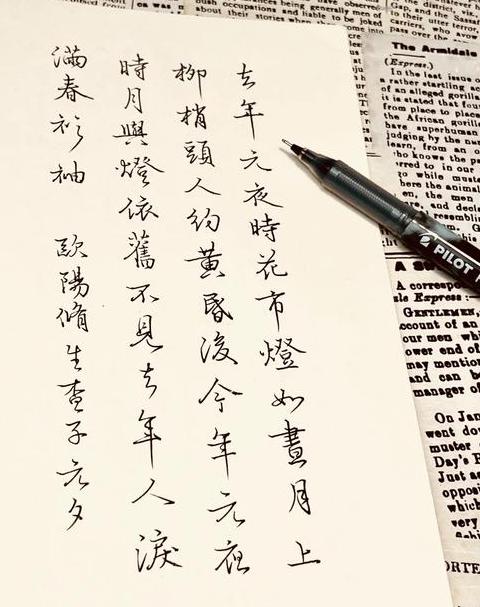 去年元夜時花市燈如晝月上
柳梢頭人約黃昏後今年元夜
時月與燈依舊不見去年人淚
滿春衫袖 歐陽脩生查子元夕
ush occupations and liable to be joked
about their stories when
Gap, and the Sassaf
to their utter terror,
carriers, who avow
The Armidale
(Express.)
In the last issue o
a rather startling ac
of an alleged gorilla
it is stated that fou
from place to place
the African gorilla
have superhuman
judging by the nu
learn, from an o
who knows the pa
rred to in our
go while muste
here the animal
en, the men
are, and decla
resembling
PILOT
A S
A correspo
le Express:—
GENTLEMEN,
ccount of an
our men whi
ower end of
may mention
and can be
manager of
On Jan
went dow
muster
Day's
Just a
opposi
which
very
ORTE